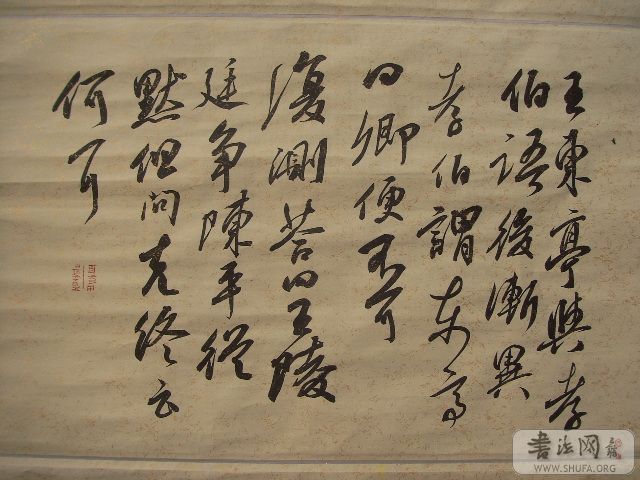 王東亭與孝
伯語後漸異
孝伯謂東亭
曰卿便不可
復測荅曰王陵
廷爭陳平從
默但問克終云
何耳
書法网
WWW.SHUFA.ORG